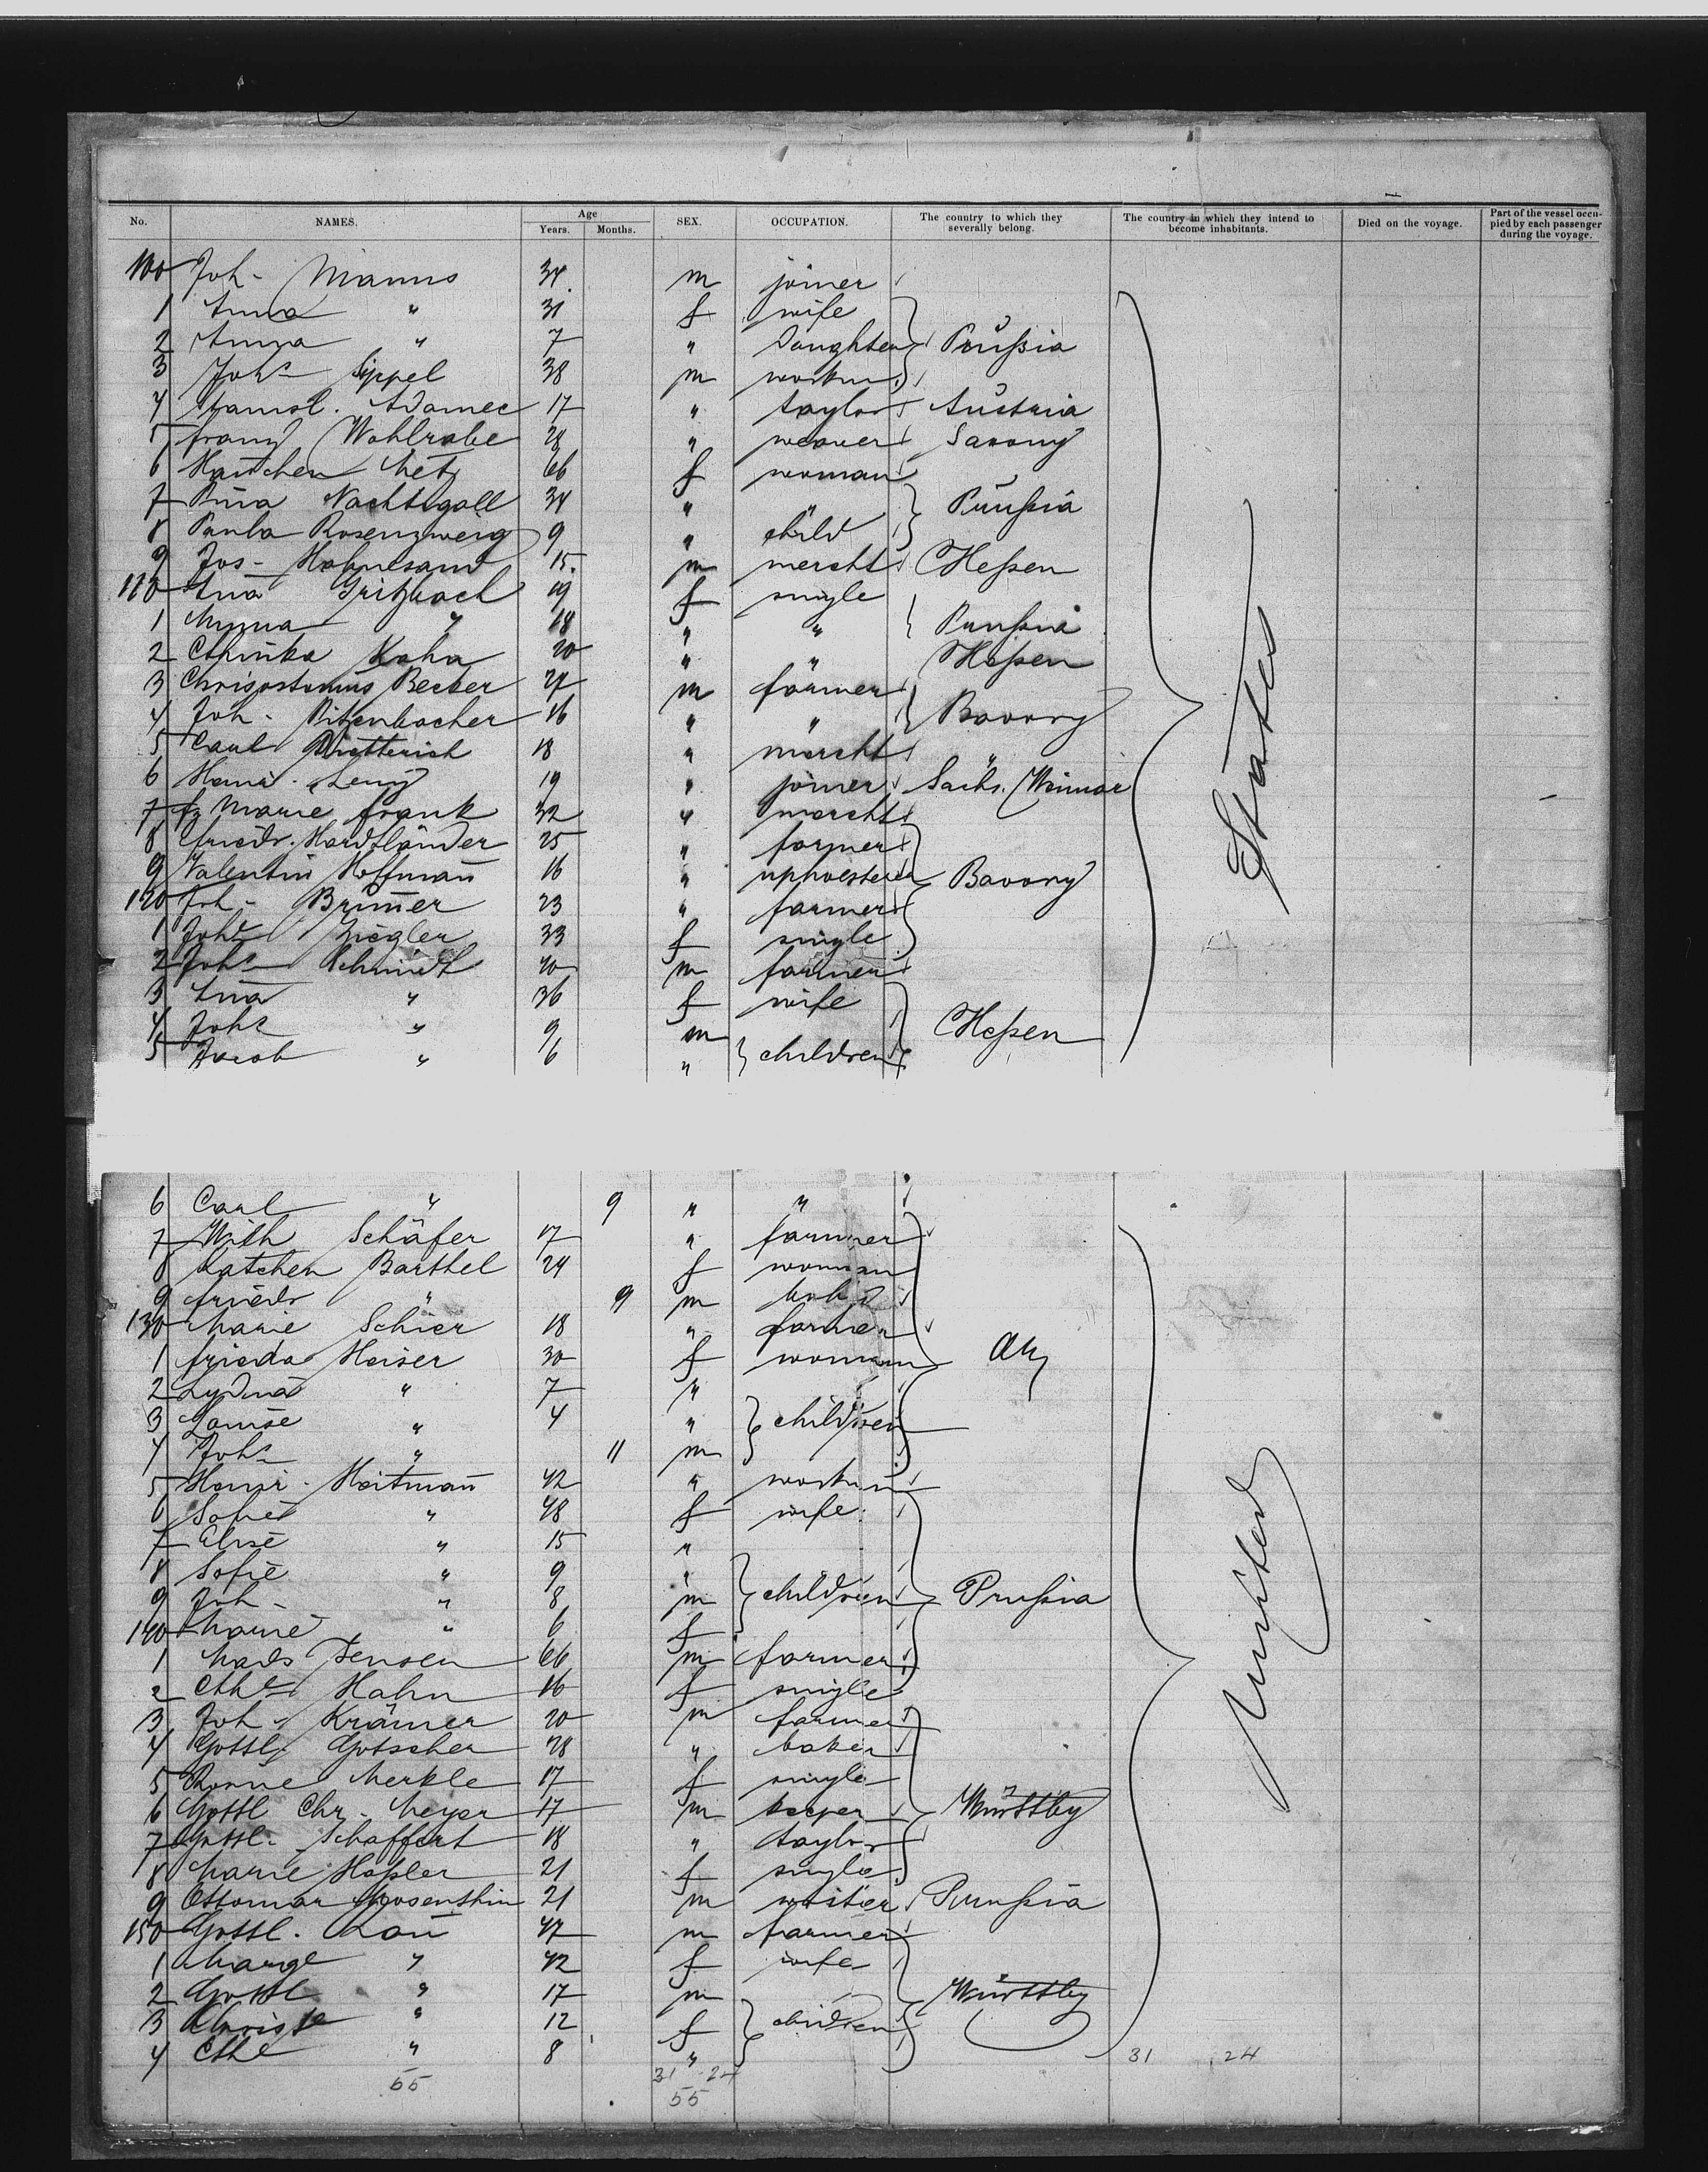 No. NAMES. Age Years. Months. SEX. OCCUPATION. The country to which they severally belong. The country in which they intend to become inhabitants. Died on the voyage. Part of the vessel occupied by each passenger during the voyage.
100 Joh. Manns 34 m joiner
1 Anna " 31 f wife
2 Anna " 7 " Daughter Prußia
3 Johs Sippel 38 m workm
4 Adamec 17 " taylor Austria
5 Franz Wohlrabe 28 " weaver Saxony
6 Hanchen Metz 66 f woman
7 Nachtigall 34 " Prußia
8 Paula Rosenzweig 9 " child
9 Jos. 15 m mercht Heßen
110 Ana 19 f single
1 " 18 " " Prußia
2 Kohn 20 " " Heßen
3 Chrisostomus Becker 27 m farmer
4 Joh. 16 " " Bavary
5 Carl 18 " mercht
6 19 " joiner Sachs. Weimar
7 Marie Frank 32 " mercht
8 Friedr. Hardtländer 25 " farmer
9 Valentin Hoffman 16 " upholsterer Bavary
120 Joh. Brüner 23 " farmer
1 Ziegler 33 f single
2 Johs Schmidt 40 m farmer
3 Ana " 36 f wife
4 Johs " 9 m Heßen
5 Jacob " 6 " children
States
6 Carl " 9 " "
7 Wilh Schäfer 17 " farmer
8 Katchen Barthel 24 f woman
9 Friedr " 9 m
130 Marie Schier 18 " farmer
1 Frieda Heiser 30 f woman
2 " 7 "
3 Louise " 4 " children
4 Johs " 11 m
5 Heinr. Heitman 42 " workm
6 Sofie " 48 f wife
7 Elise " 15 "
8 Sofie " 9 "
9 Joh. " 8 m children Prußia
140 Marie " 6 f
1 Mads Jensen 66 m farmer
2 Hahn 16 f single
3 Joh. Krämer 20 m farmer
4 Gottl. Gotscher 28 " baker
5 Merkle 17 f single
6 Gottl Chr. Meyer 17 m Württbg
7 Gottl. Schaffert 18 " taylor
8 Marie Haßler 21 f single
9 Ottomar 21 m Prußia
150 Gottl. 47 m farmer
1 Marge " 42 f wife
2 Gottl " 17 m Württbg
3 " 12 f children
4 " 8 "
United
31 24
55
31 24
55